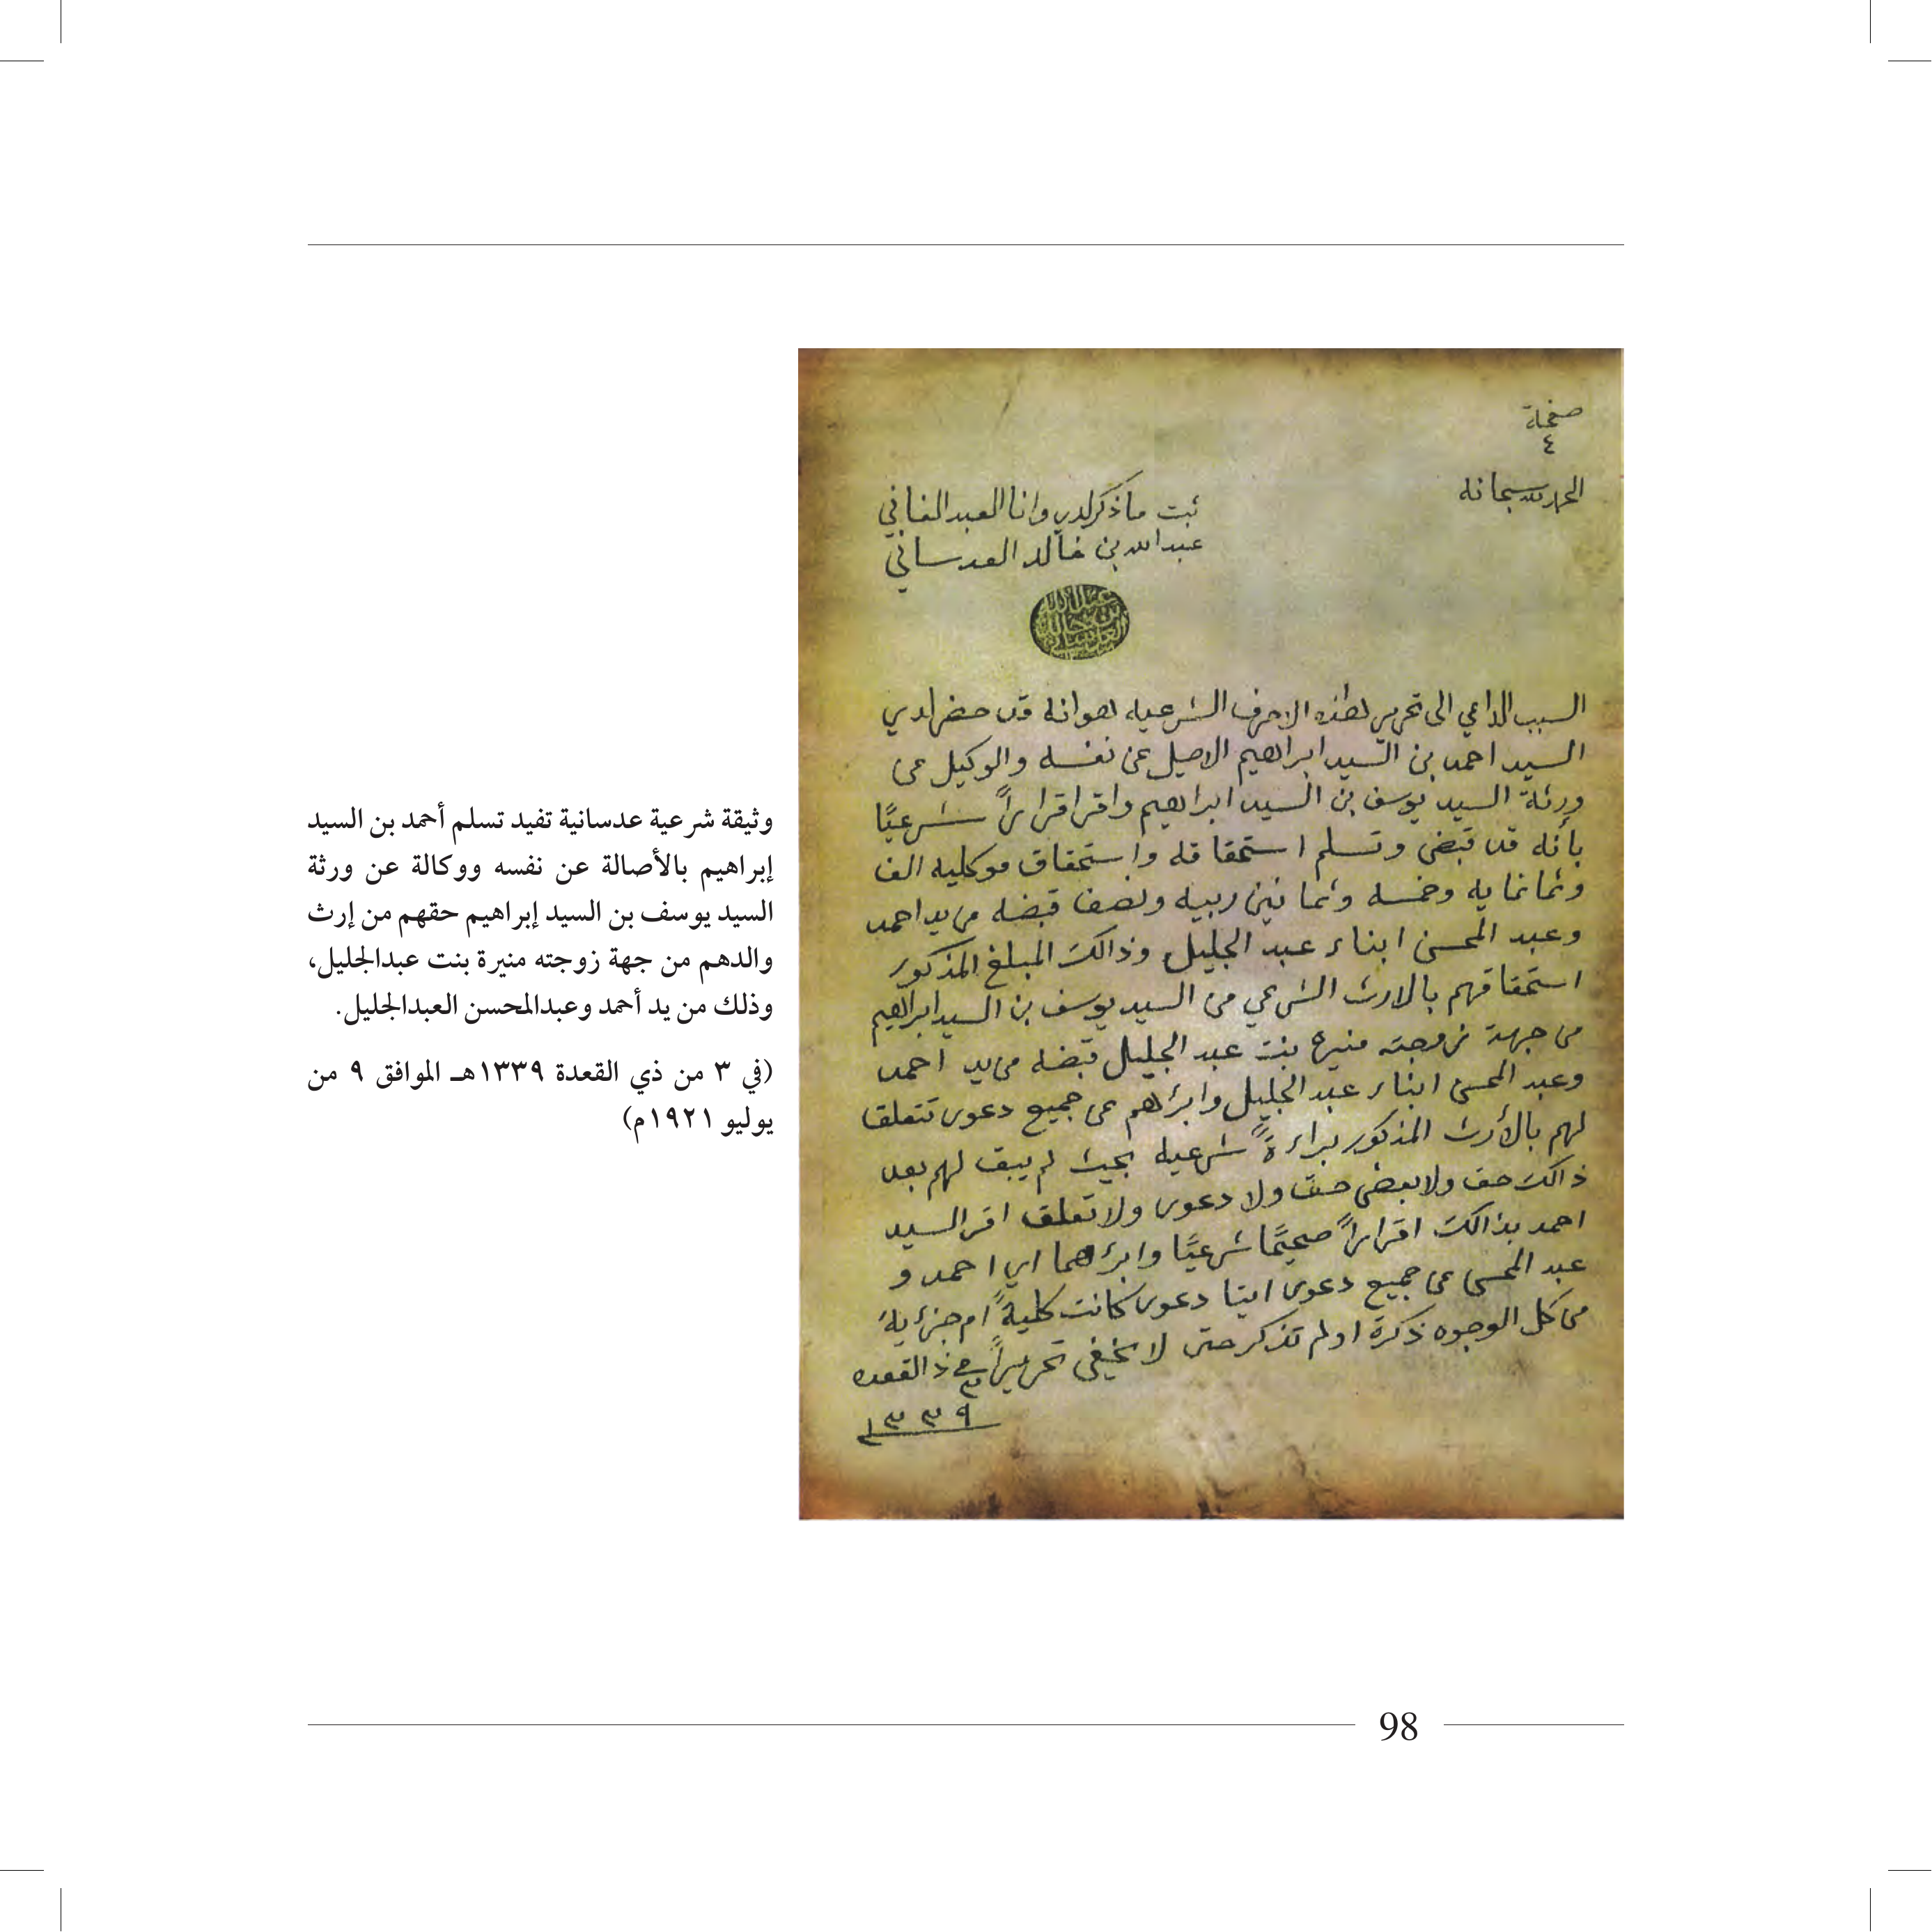 صفحة
٤
الحمد لله سبحانه
ثبت ما ذكر لدي وانا العبد الفاني
عبد الله بن خالد العدساني
السبب الداعي الى تحرير هذه الاحرف الشرعيه هو انه قد حضر لدي
السيد احمد بن السيد ابراهيم الاصيل عن نفسه والوكيل عن
ورثة السيد يوسف بن السيد ابراهيم واقر اقراراً شرعيًا
بأنه قد قبض وتسلم استحقاقه واستحقاق موكليه الف
وثمانمايه وخمسه وثمانين ربيه ونصف قبضه من يد احمد
وعبد المحسن ابناء عبد الجليل وذالك المبلغ المذكور
استحقاقهم بالارث الشرعي من السيد يوسف بن السيد ابراهيم
من جهة زوجته منيره بنت عبد الجليل قبضه من يد احمد
وعبد المحسن ابناء عبد الجليل وابرأهم عن جميع دعوى تتعلق
لهم بالأرث المذكور براءةً شرعيه بحيث لم يبق لهم بعد
ذالك حق ولا بعض حق ولا دعوى ولا تعلق اقر السيد
احمد بذالك اقراراً صحيحًا شرعيًا وابرأهما اي احمد و
عبد المحسن عن جميع دعوى ايتا دعوى كانت كليةً ام جزئية
من كل الوجوه ذكرة او لم تذكر حتى لا يخفى تحريراً في ٣ ذالقعده
١٣٣٩
وثيقة شرعية عدسانية تفيد تسلم أحمد بن السيد
إبراهيم بالأصالة عن نفسه ووكالة عن ورثة
السيد يوسف بن السيد إبراهيم حقهم من إرث
والدهم من جهة زوجته منيرة بنت عبدالجليل،
وذلك من يد أحمد وعبدالمحسن العبدالجليل.
(في ٣ من ذي القعدة ١٣٣٩هـ الموافق ٩ من
يوليو ١٩٢١م)
98